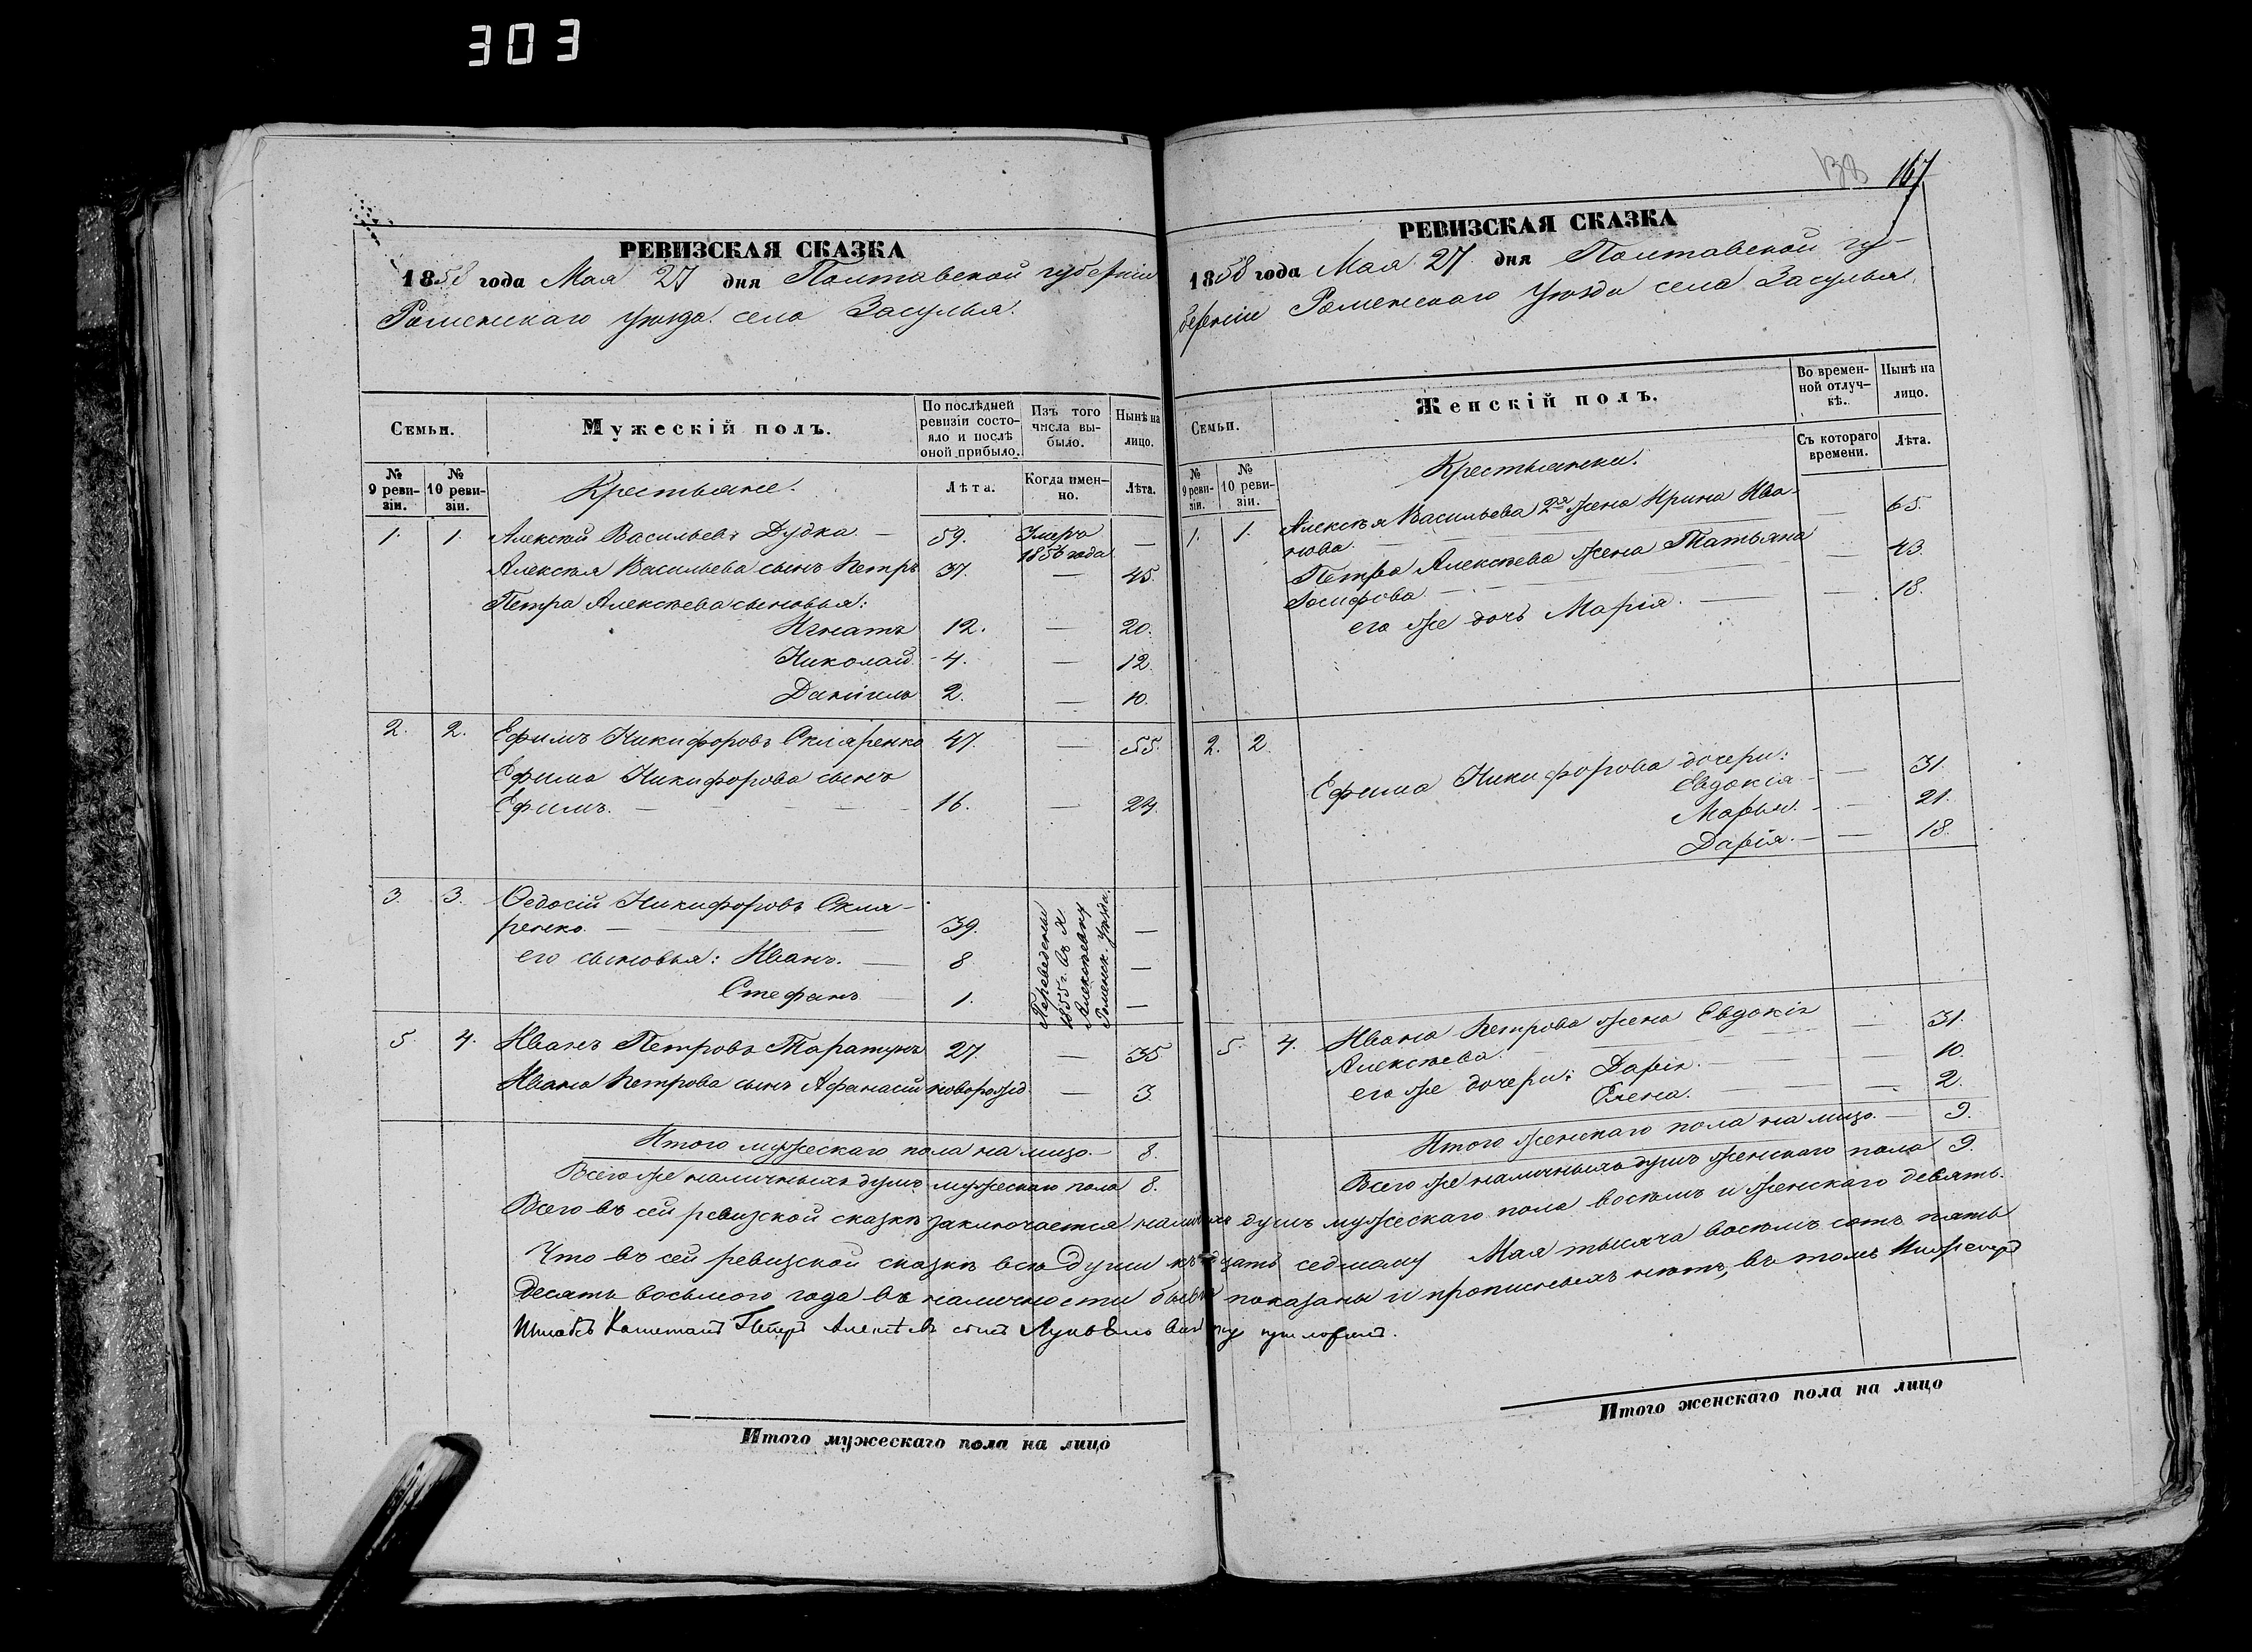 303
138 167
РЕВИЗСКАЯ СКАЗКА
1858 года Мая 27 дня Полтавской губерніи
Роменскаго уѣзда села Засулья.
Семьи.
Мужескій полъ.
По послѣдней ревизіи состояло и послѣ оной прибыло.
Изъ того числа выбыло.
Нынѣ на лицо.
№ 9 ревизіи.
№ 10 ревизіи.
Крестьяне.
Лѣта.
Когда именно.
Лѣта.
1. 1. Алексѣй Васильевъ Дудка. — 59. Умеръ 1856 года —
Алексѣя Васильева сынъ Петръ 37. — 45.
Петра Алексѣева сыновья:
Игнатъ 12. — 20.
Николай 4. — 12.
Даніилъ 2. — 10.
2. 2. Ефимъ Никифоровъ Скляренко 47. — 55.
Ефима Никифорова сынъ
Ефимъ. — 16. — 24.
3. 3. Ѳедосій Никифоровъ Скля-
ренко. — 39. —
его сыновья: Иванъ. — 8 —
Стефанъ — 1. —
Переведены
1855 г. въ
Алексѣевку
Роменск. уѣзда.
5. 4. Иванъ Петровъ Таратунъ 27. — 35
Ивана Петрова сынъ Афанасій новорожд. — 3.
Итого мужескаго пола на лицо. — 8.
Всего же наличныхъ душъ мужескаго пола 8.
РЕВИЗСКАЯ СКАЗКА
1858 года Мая 27 дня Полтавской гу-
берніи Роменскаго Уѣзда села Засулья.
Семьи.
Женскій полъ.
Во временной отлучкѣ.
Нынѣ на лицо.
№ 9 ревизіи.
№ 10 ревизіи.
Крестьянки.
Съ котораго времени.
Лѣта.
1. 1. Алексѣя Васильева 2я жена Ирина Ива-
нова. — — 65.
Петра Алексѣева жена Татьяна
Іосифова. — — 43.
его же дочь Марія. — — 18.
2. 2. Ефима Никифорова дочери:
Евдокія. — 31.
Марья. — 21.
Дарія. — 18.
5. 4. Ивана Петрова жена Евдокія
Алексѣева. — 31.
его же дочери: Дарія. — 10.
Елена. — 2.
Итого женскаго пола на лицо. — 9.
Всего же наличныхъ душъ женскаго пола 9.
Всего въ сей ревизской сказкѣ заключается душъ мужескаго пола восемь и женскаго девять.
Что въ сей ревизской сказкѣ всѣ души къ седмому Мая тысяча восемь сотъ пять
десятъ восьмого года въ наличности показаны и прописныхъ нѣтъ, въ томъ
Штабсъ Капитанъ Петръ Алексѣевъ сынъ
Итого мужескаго пола на лицо
Итого женскаго пола на лицо